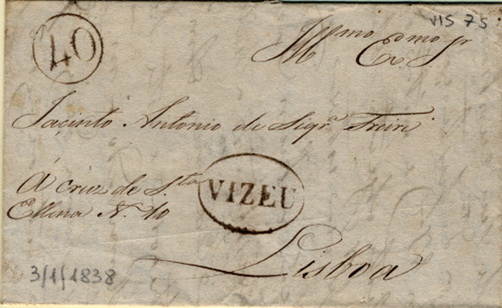 VIS 75
40
Illmo Exmo Sr
Jacinto Antonio de Siqra Freire
A cruz de Sta
Ellena No 10
VIZEU
Lisboa
3/1/1838